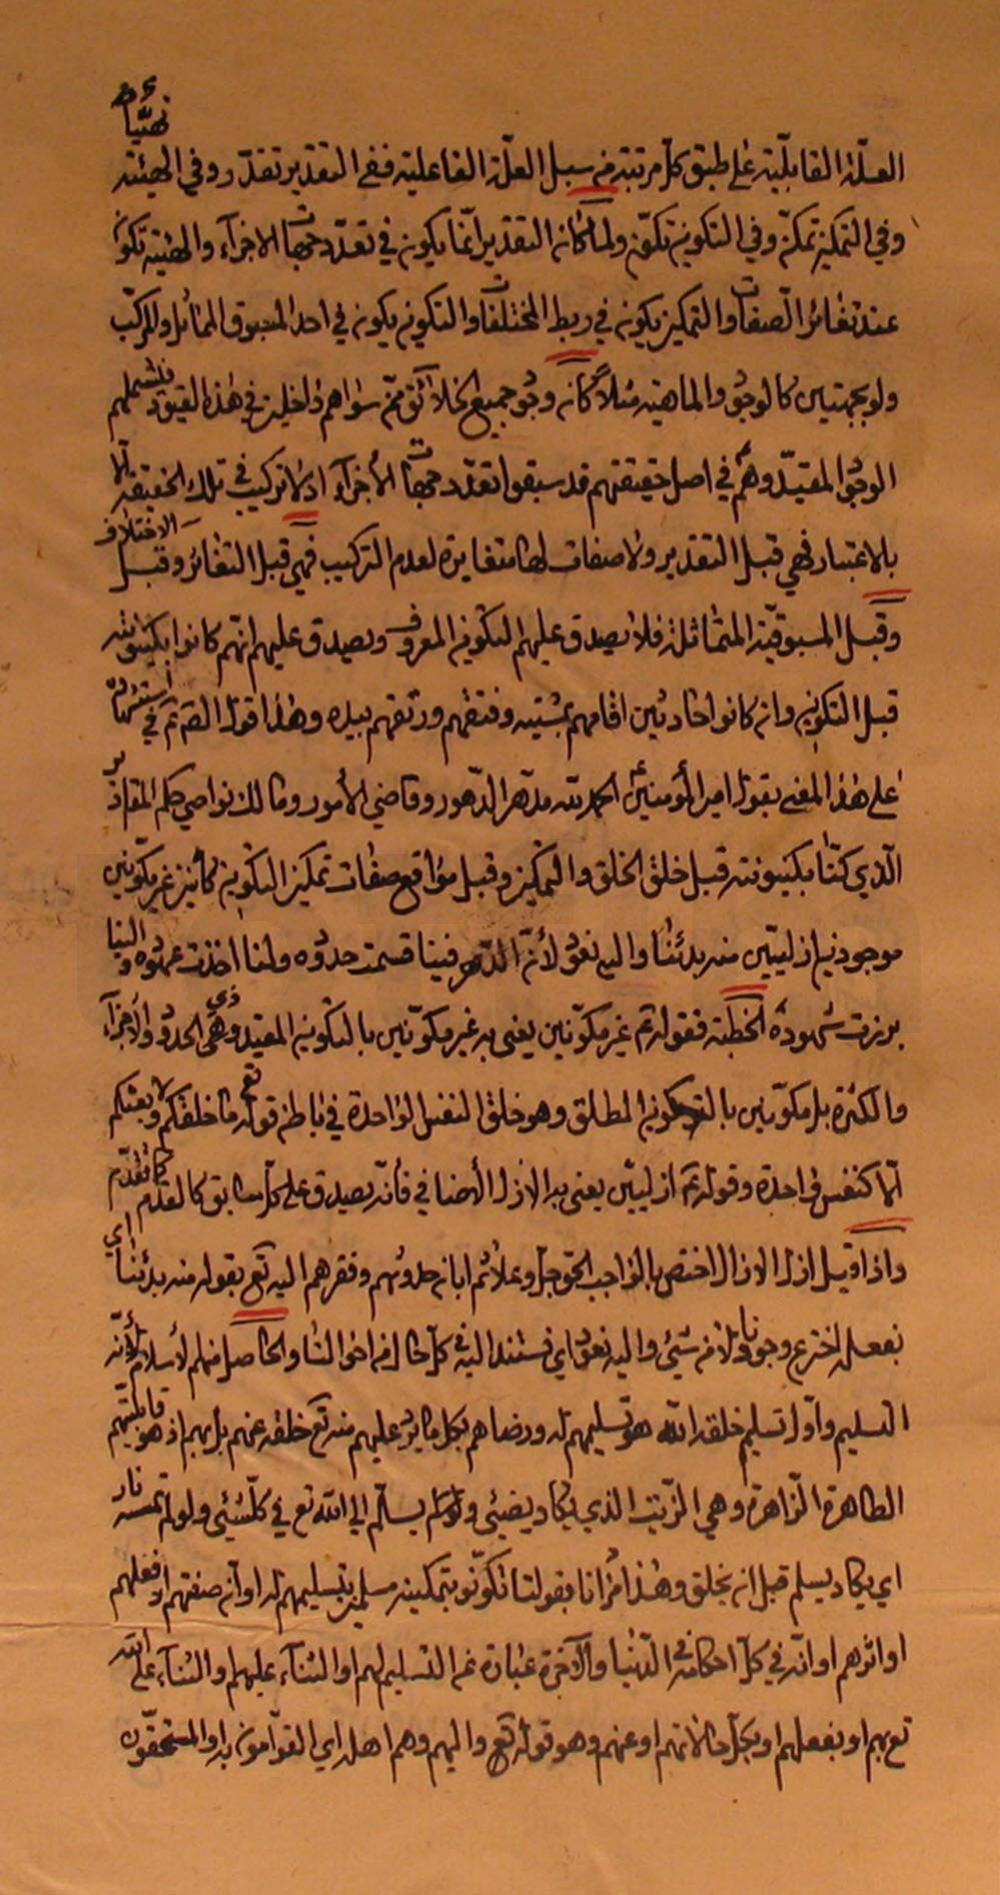 تهيّأت
العلّة القابليّة على طبق كلّ مرتبة من سبل العلّة الفاعلية ففي التقدير تقدّر وفي الهيئة
وفي التمكين تمكّن وفي التكوين تكوّن ولما كان التقدير انما يكون في تعدّد جهات الاجزآء والهيئة تكون
عند تغائر الصفات والتمكين يكون في ربط المختلفات والتكوين يكون في احد المسبوق المماثل والمركّب
ولو بجهتين كالوجود والماهية مثلاً كان وجود جميع الخلائق ممّن سواهم داخلين في هذه القيود فيشملهم
الوجود المقيّد وهم في اصل حقيقتهم قد سبقوا تعدّد جهات الأجزآء اذ لا تركيب في تلك الحقيقة الا
بالاعتبار فهي قبل التقدير ولا صفات لها متغايرة لعدم التركيب فهي قبل التغائر وقبل الاختلاف
وقبل المسبوقيّة المتماثلة فلا يصدق عليهم التكوين المعروف ويصدق عليهم انّهم كانوا بكينونته
قبل التكوين وان كانوا حادثين اقامهم بمشيته وفتقهم ورتقهم بيده وهذا قولنا في استشهاد
على هذا المعنى بقول امير المؤمنين الحمد لله مدهّر الدّهور وقاضي الأمور ومالك نواصي حكم المقادير
الّذي كنّا بكينونته قبل خلق الخلق والتمكين وقبل مواقع صفات تمكين التكوين كائنين غير مكوّنين
موجودين ازليّين منه بدئنا واليه نعود لأنّ الدّهر فينا قسمت حدوده ولنا اخذت عهوده والينا
برزت شهوده الخطبة فقوله غير مكوّنين يعنى به غير مكوّنين بالتكوين المقيد وهي ذي الحدود والأجزآء
والكثرة بل مكوّنين بالتكوين المطلق وهو خلق النفس الواحدة في باطن قوله تع ما خلقكم ولا بعثكم
الّا كنفس واحدة وقوله ازليّين يعنى به الازل الأضافي فانّه يصدق على كلّ سابق كالقدم كما تقدّم
واذا قيل ازل الازال اختص بالواجب الحق جل وعلا ثم ابان حدوثهم وفقرهم اليه تع بقوله منه بدئنا اي
بفعله اخترع وجودنا لا من شئ واليه نعود اي فستند اليه في كلّ حال من احوالنا والحاصل منهم لاسلام لأنّه
التسليم واوّل تسليم خلقه الله هو تسليمهم له ورضاهم بكل ما يريد عليهم منه تع خلقه عنهم بل بهم اذ هو قابليتهم
الطاهرة الزّاهرة وهي الزّيت الذي يكاد يضيئ ولو لم يسلّم الى الله تع في كلّ شئ ولو لم تمسسه نار
اي يكاد يسلم قبل ان يخلق وهذا مرادنا بقولنا تكوّنوا بتمكينه مسلمين بتسليمهم له او انه صفتهم او فعلهم
او اثرهم او انّه في كلّ احكامه في الدّنيا والآخرة عبارة عن التسليم لهم او الثنآء عليهم او الثنآء على الله
تع بهم او بفعلهم او بكلّ حالاتهم او عنهم وهو قوله تع واليهم وهم اهله اي القوّامون به او المستحقّون